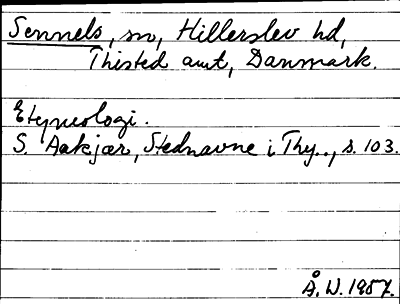 Sennels, sn, Hillerslev hd,
Thisted amt, Danmark.
Etymologi.
S. Aakjær, Stednavne i Thy.., s. 103.
Å. W. 1957.